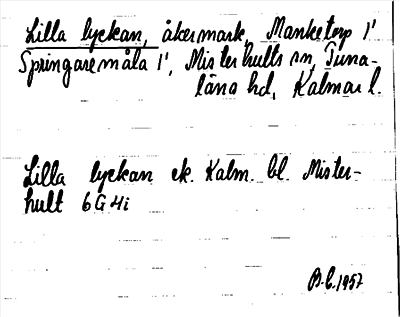 Lilla lyckan, åkermark, Manketorp 1'
Springaremåla 1', Misterhults sn, Tuna-
läns hd, Kalmar l.
Lilla lyckan ek. Kalm. bl. Mister-
hult 6 G 4i
B.C. 1957